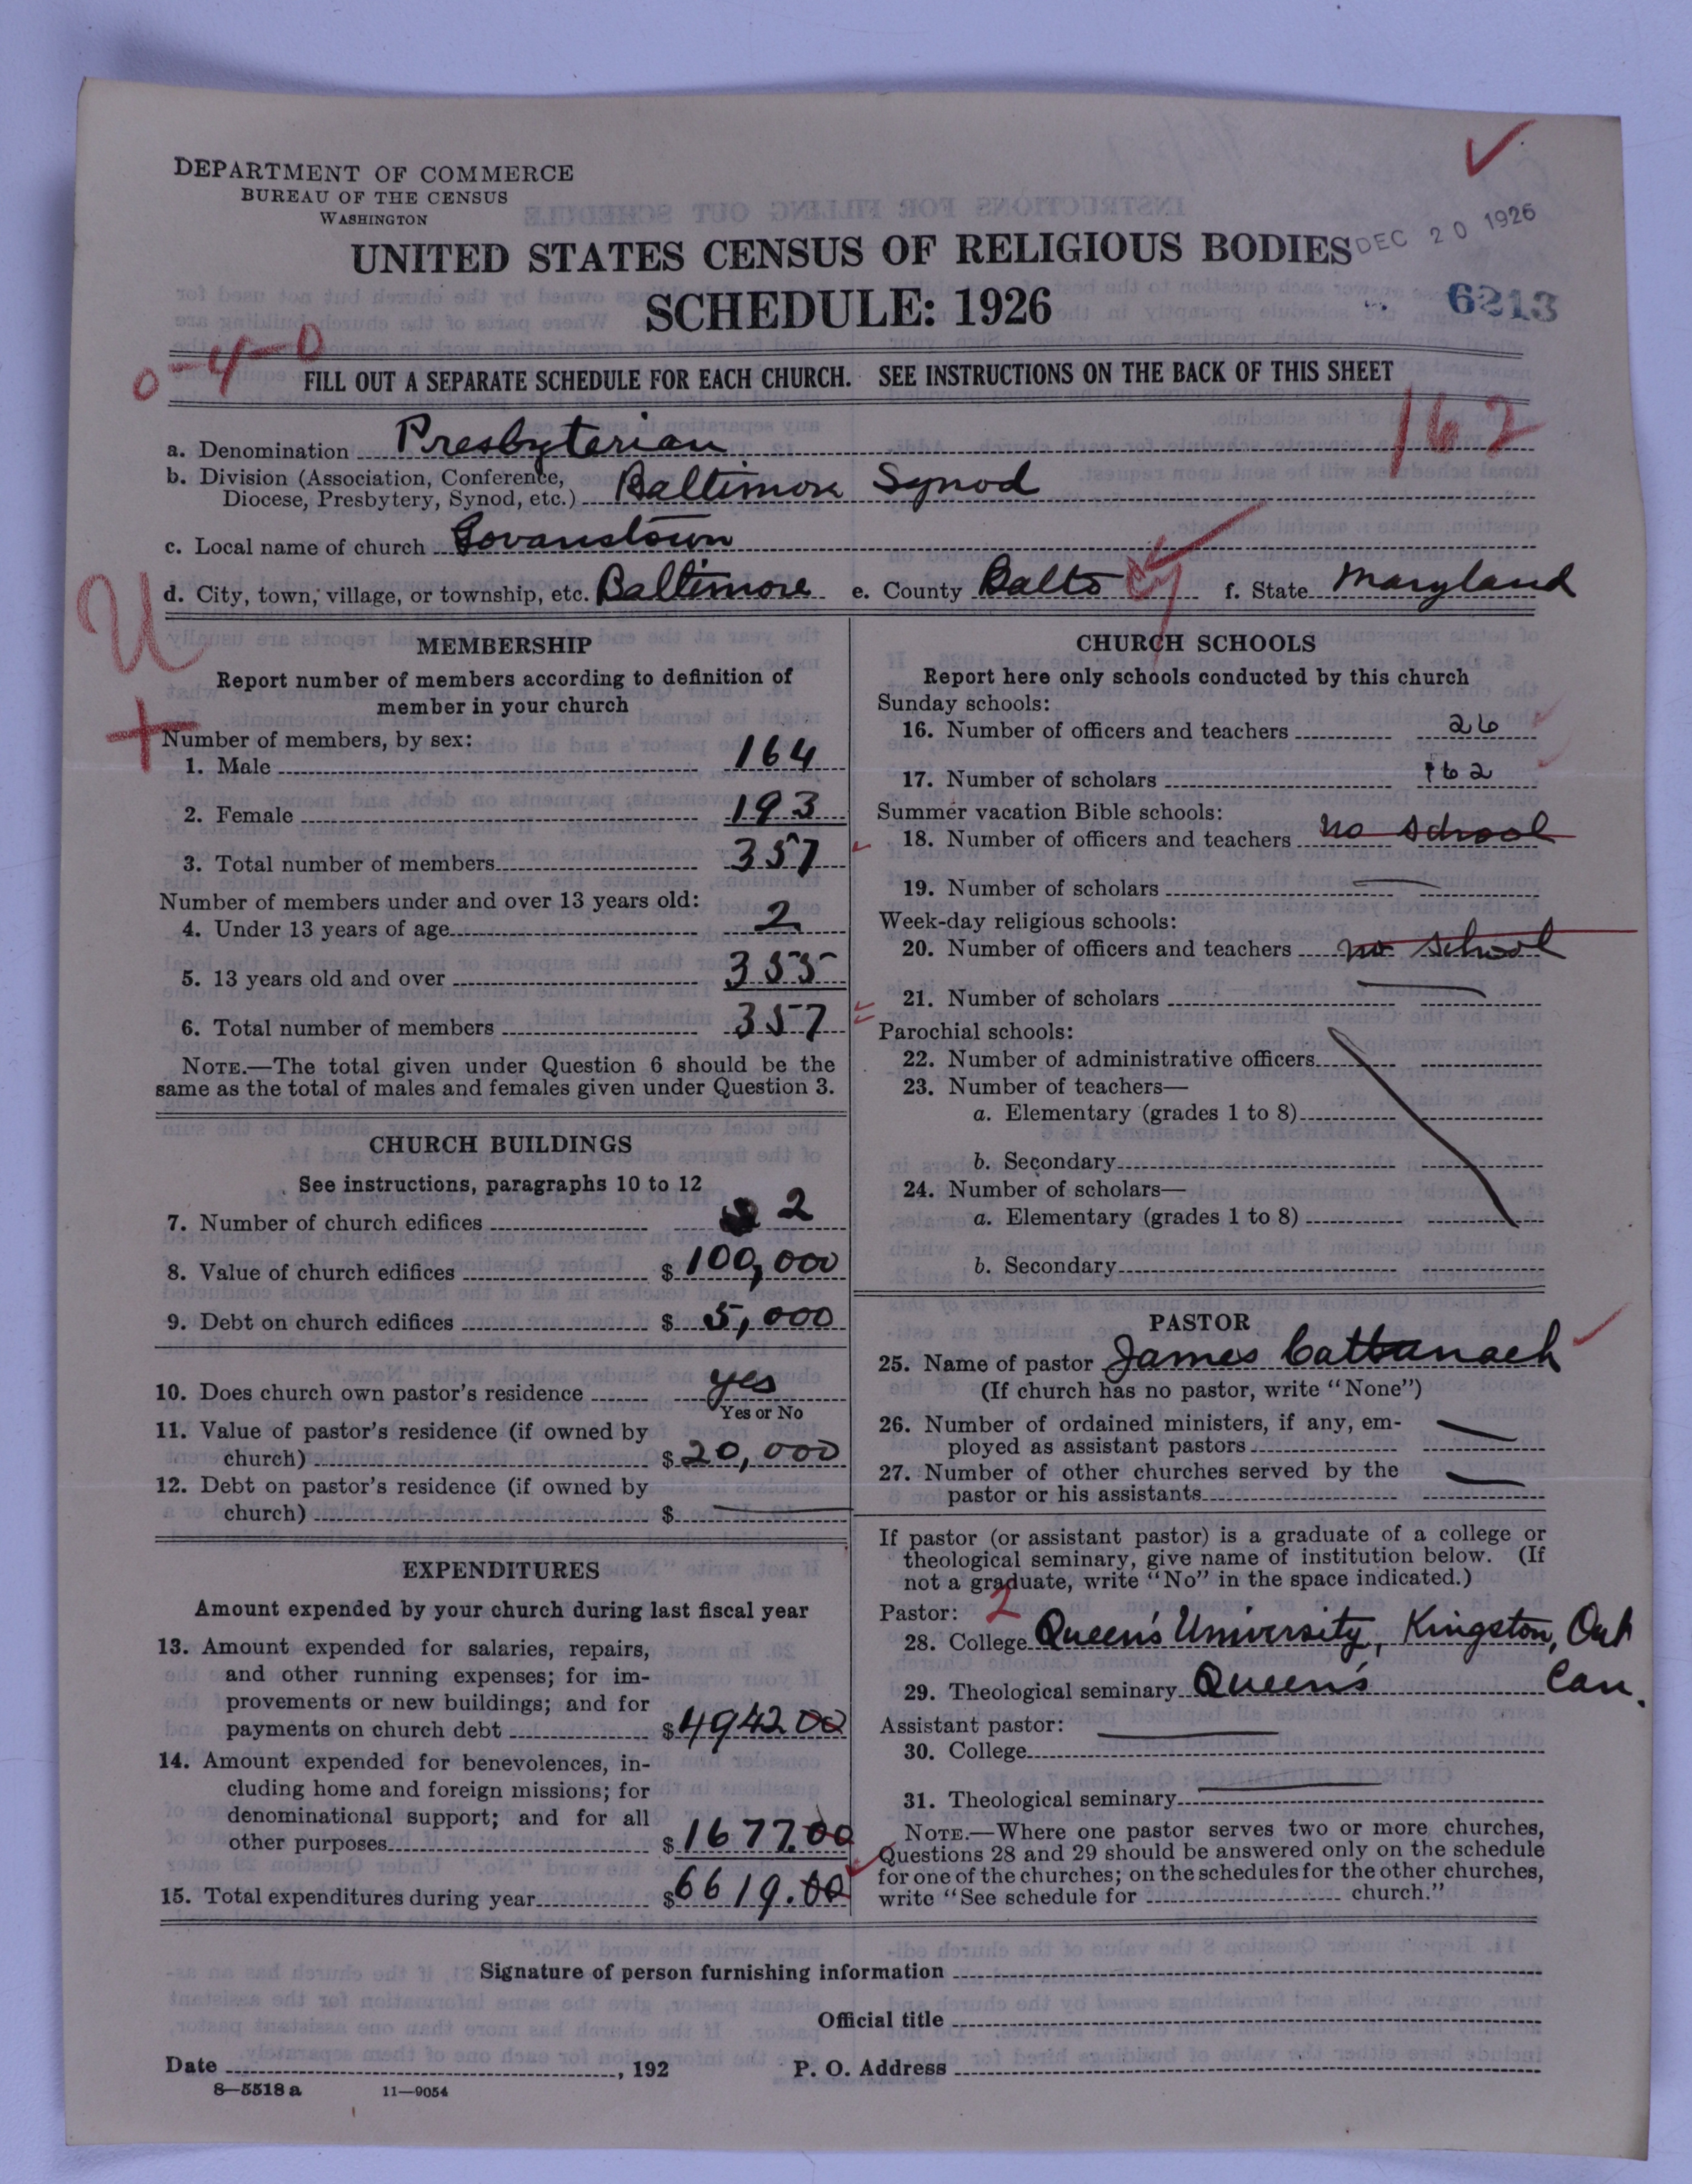 DEPARTMENT OF COMMERCE
BUREAU OF THE CENSUS
WASHINGTON
UNITED STATES CENSUS OF RELIGIOUS BODIES
DEC 20 1926
SCHEDULE: 1926
6213
0-4-0
FILL OUT A SEPARATE SCHEDULE FOR EACH CHURCH. SEE INSTRUCTIONS ON THE BACK OF THIS SHEET
162
a. Denomination Presbyterian
b. Division (Association, Conference,
Diocese, Presbytery, Synod, etc.) Baltimore Synod
c. Local name of church Govanstown
d. City, town, village, or township, etc. Baltimore e. County Balto f. State Maryland
U
+
MEMBERSHIP
Report number of members according to definition of
member in your church
Number of members, by sex:
1. Male 164
2. Female 193
3. Total number of members 357
Number of members under and over 13 years old:
4. Under 13 years of age 2
5. 13 years old and over 355
6. Total number of members 357
NOTE.—The total given under Question 6 should be the
same as the total of males and females given under Question 3.
CHURCH BUILDINGS
See instructions, paragraphs 10 to 12
7. Number of church edifices 2
8. Value of church edifices $ 100,000
9. Debt on church edifices $ 5,000
10. Does church own pastor's residence yes
Yes or No
11. Value of pastor's residence (if owned by
church) $ 20,000
12. Debt on pastor's residence (if owned by
church) $
EXPENDITURES
Amount expended by your church during last fiscal year
13. Amount expended for salaries, repairs,
and other running expenses; for im-
provements or new buildings; and for
payments on church debt $ 4942 00
14. Amount expended for benevolences, in-
cluding home and foreign missions; for
denominational support; and for all
other purposes $ 1677.00
15. Total expenditures during year $ 6619.00
CHURCH SCHOOLS
Report here only schools conducted by this church
Sunday schools:
16. Number of officers and teachers 26
17. Number of scholars 162
Summer vacation Bible schools:
18. Number of officers and teachers no school
19. Number of scholars
Week-day religious schools:
20. Number of officers and teachers no school
21. Number of scholars
Parochial schools:
22. Number of administrative officers
23. Number of teachers—
a. Elementary (grades 1 to 8)
b. Secondary
24. Number of scholars—
a. Elementary (grades 1 to 8)
b. Secondary
PASTOR
25. Name of pastor James Cattanach
(If church has no pastor, write "None")
26. Number of ordained ministers, if any, em-
ployed as assistant pastors
27. Number of other churches served by the
pastor or his assistants
If pastor (or assistant pastor) is a graduate of a college or
theological seminary, give name of institution below. (If
not a graduate, write "No" in the space indicated.)
Pastor: 2
28. College Queen's University, Kingston, Ont
29. Theological seminary Queen's Can.
Assistant pastor:
30. College
31. Theological seminary
NOTE.—Where one pastor serves two or more churches,
Questions 28 and 29 should be answered only on the schedule
for one of the churches; on the schedules for the other churches,
write "See schedule for church."
Signature of person furnishing information
Official title
Date , 192 P. O. Address
8—5518 a 11—9054